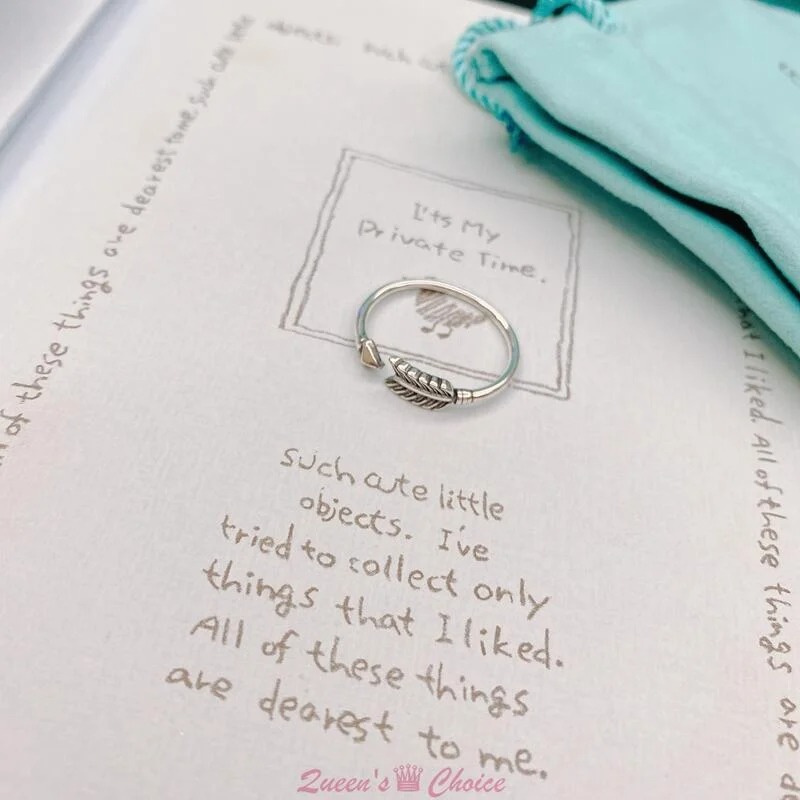 I'ts My
Private Time.
such cute little
objects. I've
tried to collect only
things that I liked.
All of these things
are dearest to me.
of these things are dearest to me. such cute little
objects. such cute
that I liked. All of these things are d
Queen's Choice